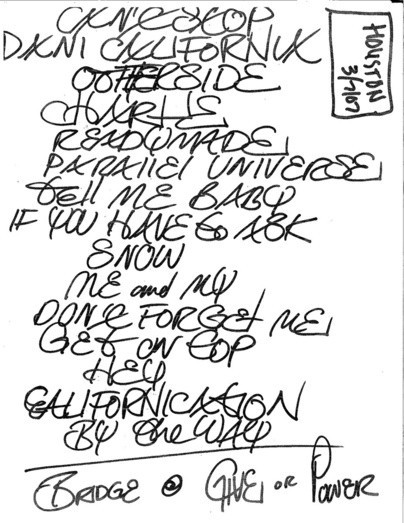 CAN'T STOP
DANI CALIFORNIA
OTHERSIDE
CHARLIE
READYMADE
PARALLEL UNIVERSE
TELL ME BABY
IF YOU HAVE TO ASK
SNOW
ME and MY
DON'T FORGET ME
GET ON TOP
HEY
CALIFORNICATION
BY the WAY
BRIDGE GIVE OR POWER
HOUSTON
3/7/07